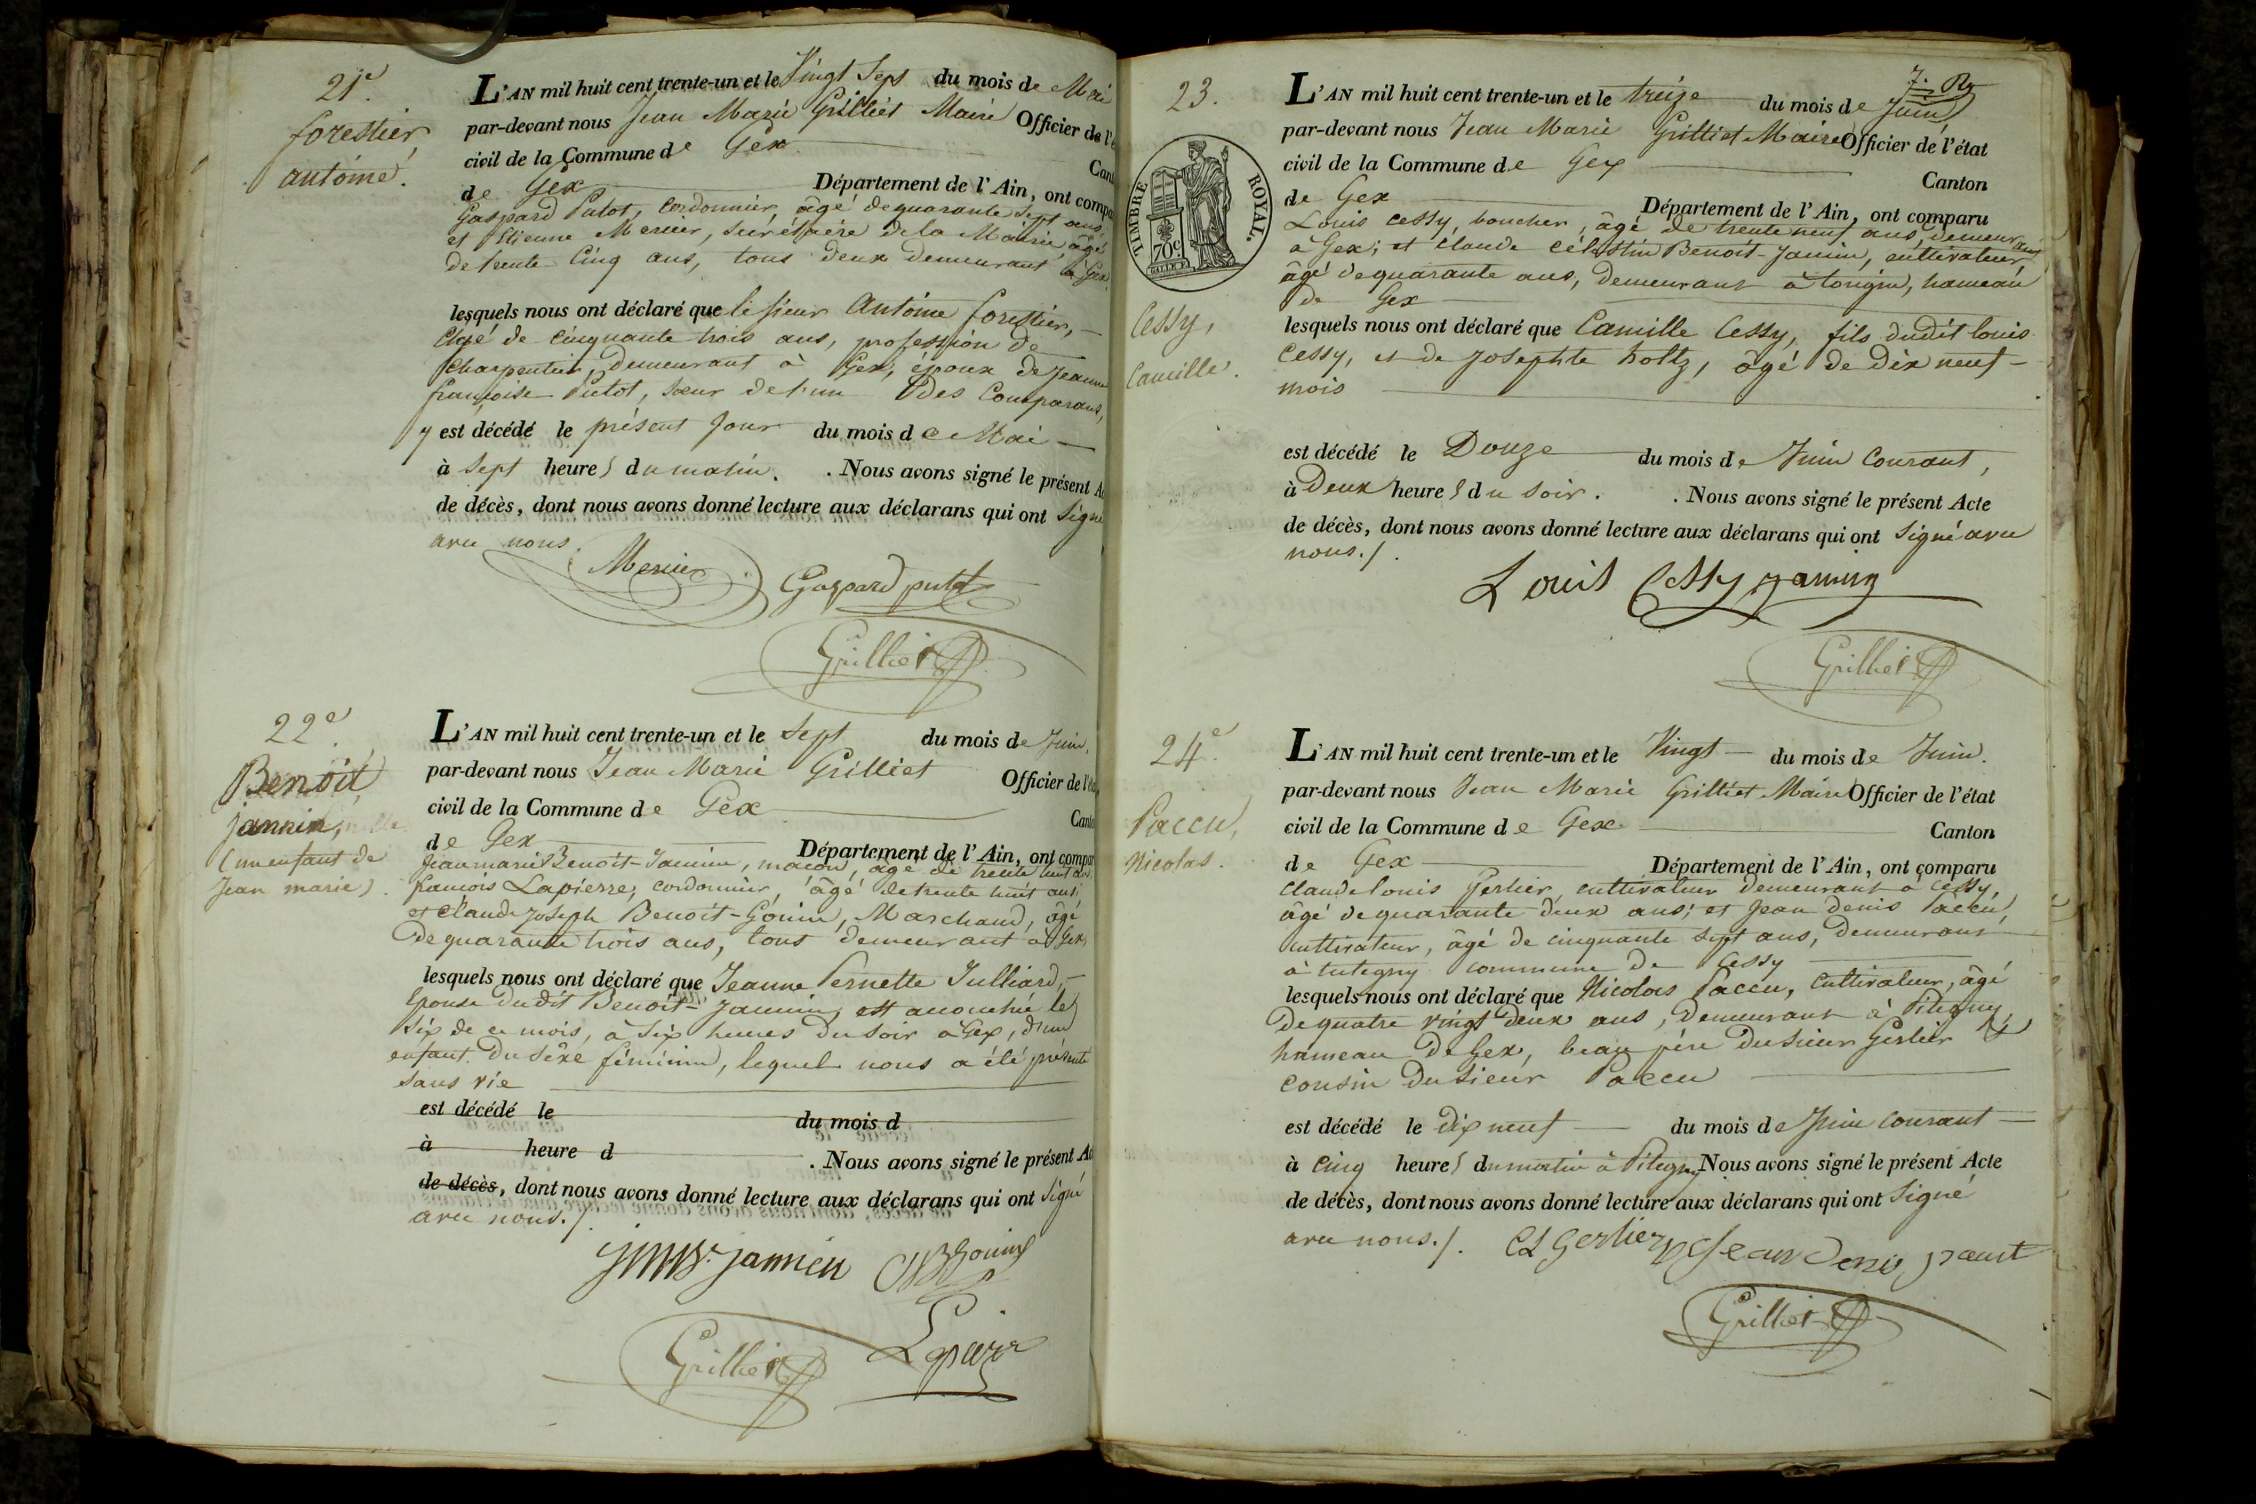 21e.
forestier,
antoine.
L'AN mil huit cent trente-un et le Vingt Sept du mois de Mai
par-devant nous Jean Marie Grilliet Maire Officier de l'é
civil de la Commune de Gex Cant
de Gex Département de l'Ain, ont compa
Gaspard Putot, Cordonnier, âgé de quarante Sept ans,
et Etienne Mercier, Secrétaire de la Mairie, âgé
de trente Cinq ans, tous deux Demeurant à Gex,
lesquels nous ont déclaré que le Sieur Antoine forestier,
âgé de Cinquante trois ans, profession de
Charpentier, Demeurant à Gex, époux de Jeanne
françoise Putot, Sœur de l'un Des Comparans,
y est décédé le présent Jour du mois de Mai
à Sept heures du matin. . Nous avons signé le présent A
de décès, dont nous avons donné lecture aux déclarans qui ont Signé
avec nous.
Mercier Gaspard putot
Grilliet
22e.
Benoit
jannin,
(un enfant de
Jean marie).
L'AN mil huit cent trente-un et le Sept du mois de Juin,
par-devant nous Jean Marie Grilliet Officier de l'éta
civil de la Commune de Gex Canto
de Gex Département de l'Ain, ont compar
Jean marie Benoit-Jannin, maçon, âgé de trente huit ans,
françois Lapierre, cordonnier, âgé de trente huit ans;
et Claude Joseph Benoit-Gonin, Marchand, âgé
De quarante trois ans, tous demeurant à Gex,
lesquels nous ont déclaré que Jeanne Pernette Julliard,
Epouse Dudit Benoit-Jannin, est accouchée le
Six de ce mois, à Six heures Du Soir à Gex, d'un
enfant Du Sèxe féminin, lequel nous a été présenté
Sans vie
est décédé le du mois d
à heure d . Nous avons signé le présent Ac
de décès, dont nous avons donné lecture aux déclarans qui ont Signé
avec nous./.
jmBt jannien Gonin
Grilliet Lapierre
7. Rg
23.
TIMBRE ROYAL.
70c.
Cessy,
Camille.
L'AN mil huit cent trente-un et le treize du mois de Juin
par-devant nous Jean Marie Grilliet Maire Officier de l'état
civil de la Commune de Gex Canton
de Gex Département de l'Ain, ont comparu
Louis Cessy, boucher, âgé de trente neuf ans, demeurant
à Gex; et Claude Célestin Benoit-Jannin, cultivateur,
âgé de quarante ans, Demeurant à tougin, hameau
de Gex
lesquels nous ont déclaré que Camille Cessy, fils dudit louis
Cessy, et de Josephte holtz, âgé de Dix neuf
mois
est décédé le Douze du mois de Juin Courant,
à Deux heures du Soir. . Nous avons signé le présent Acte
de décès, dont nous avons donné lecture aux déclarans qui ont Signé avec
nous./.
Louis Cessy janning
Grilliet
24e.
Paccu,
Nicolas.
L'AN mil huit cent trente-un et le Vingt du mois de Juin.
par-devant nous Jean Marie Grilliet Maire Officier de l'état
civil de la Commune de Gex Canton
de Gex Département de l'Ain, ont comparu
Claude louis Gerlier cultivateur demeurant à Cessy,
âgé de quarante deux ans; et Jean Denis Paccu,
cultivateur, âgé de cinquante Sept ans, Demeurant
à tutegny commune de Cessy
lesquels nous ont déclaré que Nicolas Paccu, Cultivateur, âgé
De quatre vingt deux ans, Demeurant à Pitegny,
hameau de Gex, beau père Du Sieur Gerlier &
cousin du Sieur Paccu
est décédé le dix neuf du mois de Juin courant
à Cinq heures du matin à Pitegny Nous avons signé le présent Acte
de décès, dont nous avons donné lecture aux déclarans qui ont Signé
avec nous./. CL Gerlier Jean Denis paccut
Grilliet